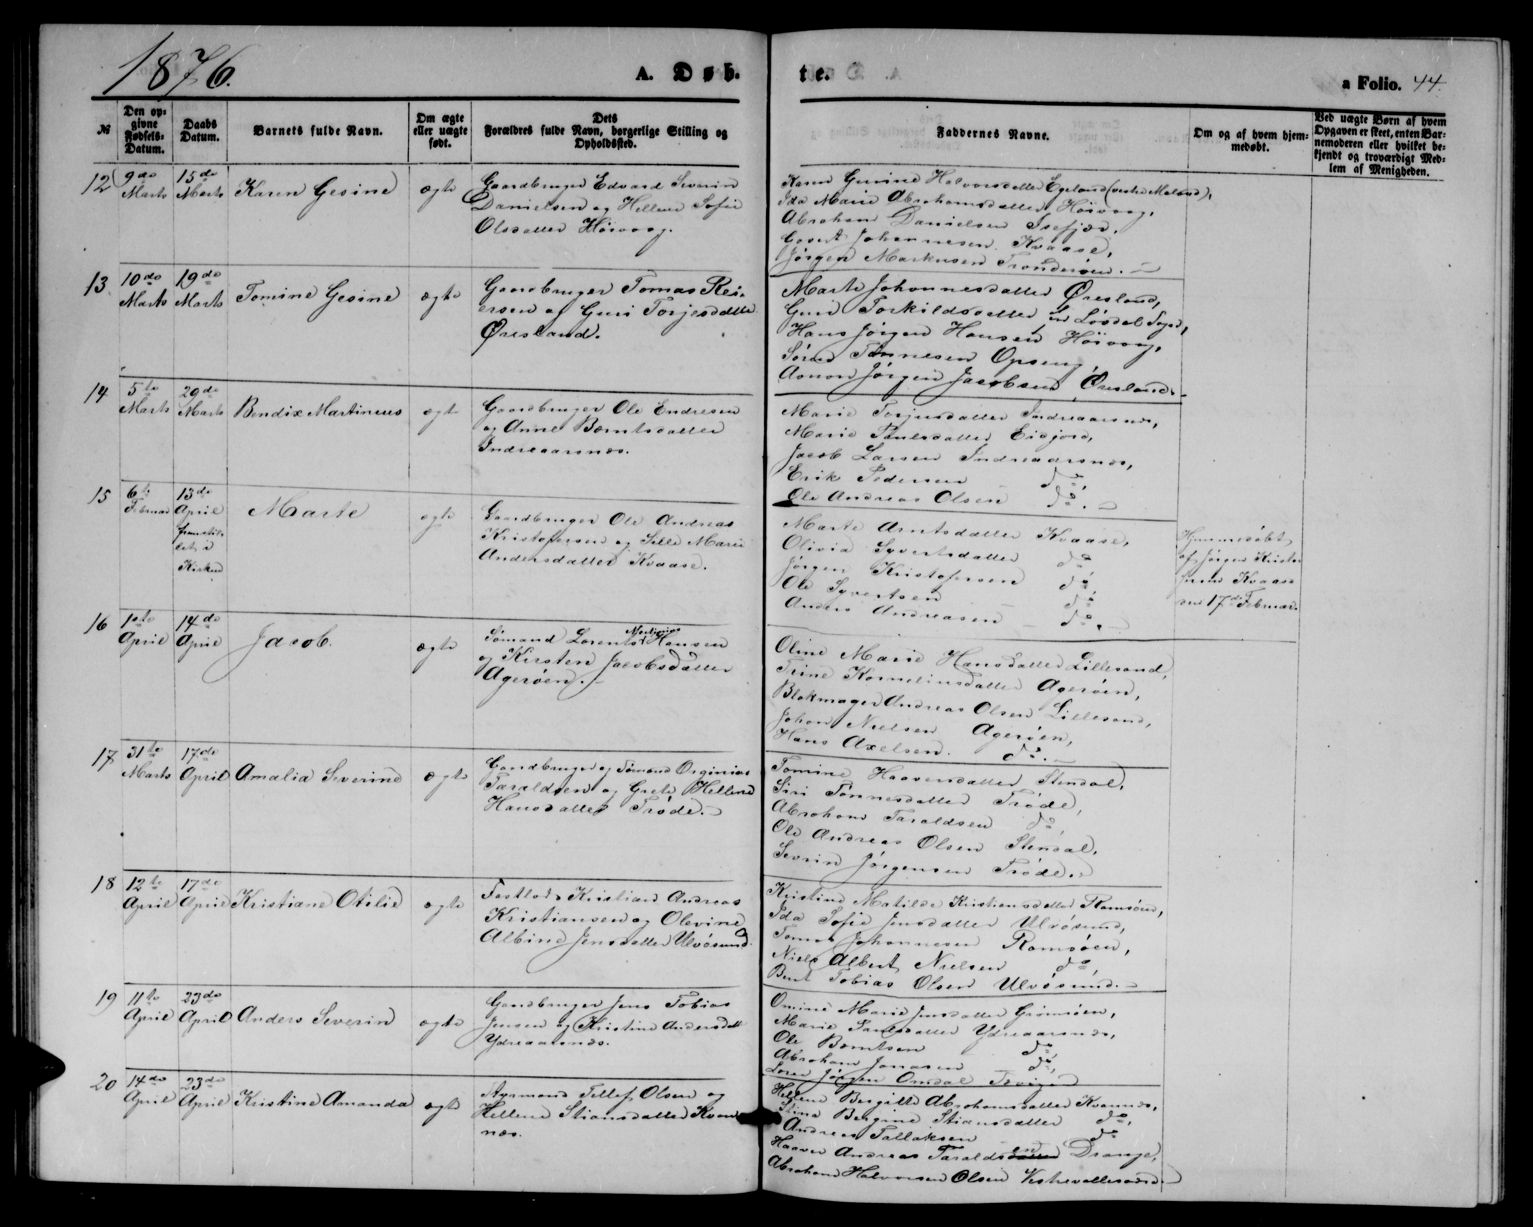 1876.
A. Døb-
te.
a Folio. 44.
№
Den op-
givne
Fødsels-
Datum.
Daabs
Datum.
Barnets fulde Navn.
Om ægte
eller uægte
født.
Dets
Forældres fulde Navn, borgerlige Stilling og
Opholdssted.
Faddernes Navne.
Om og af hvem hjem-
medøbt.
Ved uægte Børn af hvem
Opgaven er skeet, enten Bar-
nemoderen eller hvilket be-
kjendt og troværdigt Med-
lem af Menigheden.
12
9de
Marts
15de
Marts
Karen Gesine
ægte
Gaardbruger Edvard Severin
Danielsen og Hellene Sofie
Olsdatter Høivaag.
Karen Gurine Halvorsdatter Egeland
Ida Marie Abrahamsdatter Høivaag,
Abraham Danielsen Isefjær,
Johannesen Kvaase,
Jørgen Markusen
13
10de
Marts
19de
Marts
Tomine Gesine
ægte
Gaardbruger Tomas Rei-
ersen og Guri Torjesdatter
Øresland.
Marte Johannesdatter Øresland,
Guri Torkildsdatter
Hans Jørgen Hansen Høivaag,
Søren Tønnesen
Aanon Jørgen Jacobsen Øresland.
14
5te
Marts
29de
Marts
Bendix Martineus
ægte
Gaardbruger Ole Endresen
og Anne Berntsdatter
Indreaarsnæs.
Marie Torjusdatter Indreaarsnæs,
Marie Paulsdatter Eidjord,
Jacob Larsen Indreaarsnæs,
Erik Pedersen do,
Ole Andreas Olsen do.
15
6te
Februar
13de
April
fremstil-
let i
Kirken
Marte
ægte
Gaardbruger Ole Andreas
Kristofersen og Sille Marie
Andersdatter Kvaase.
Marte Arntsdatter Kvaase,
Olivia Syvertsdatter do
Jørgen Kristofersen do,
Ole Syvertsen do,
Anders Andreasen do.
Hjemmedøbt
af Jørgen Kristo-
fersen Kvaase
den 17de Februar.
16
1ste
April
14de
April
Jacob.
ægte
Sømand Lorents Hansen
og Kirsten Jacobsdatter
Agerøen.
Oline Marie Hansdatter Lillesand,
Trine Kornelinsdatter Agerøen,
Blokmager Andreas Olsen Lillesand,
Johan Nielsen Agerøen,
Hans Axelsen do.
17
31te
Marts
17de
April
Amalia Severine
ægte
Gaardbruger og Sømand Orginius
Taraldsen og Grete Hellene
Hansdatter Trøde.
Tomine Haaversdatter Stendal,
Siri Tønnesdatter Trøde,
Abraham Taraldsen do,
Ole Andreas Olsen Stendal,
Sevrin Jørgensen Trøde.
18
12te
April
17de
April
Kristiane Otilie
ægte
Kristian Andreas
Kristiansen og Olevine
Albine Jensdatter Ulvøsund.
Kristine Matilde Kristensdatter Ramsøen,
Ida Sofie Jensdatter Ulvøsund,
Tomas Johannesen Ramsøen,
Niels Albert Nielsen do,
Bent Tobias Olsen Ulvøsund.
19
11te
April
23de
April
Anders Severin
ægte
Gaardbruger Jens Tobias
Jensen og Kristine Andersdatter
Ydreaarsnæs.
Omine Marie Jensdatter Grimsøen,
Marie Paulsdatter Ydreaarsnæs,
Ole Berntsen do,
Abraham Jonasen do,
Jørgen Omdal
20
14de
April
23de
April
Kristine Amanda
ægte
Tellef Olsen og
Hellene Stiansdatter Kvan-
næs.
Hellene Bergitte Abrahamsdatter Kvannæs,
Stina Bergine Stiansdatter do,
Andreas Tallaksen do
Haaver Andreas Taraldsen Drange,
Abraham Halvorsen Olsen Vestrevallesværd.